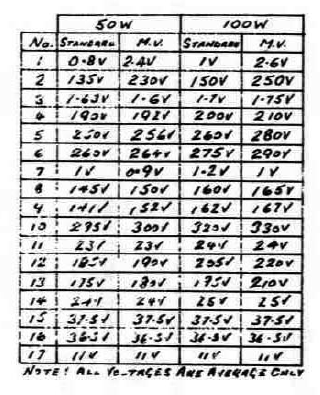 50W 100W
No. STANDARD M.V. STANDARD M.V.
1 0.8V 2.4V 1V 2.6V
2 135V 230V 150V 250V
3 1.63V 1.6V 1.7V 1.75V
4 190V 192V 200V 210V
5 250V 256V 260V 280V
6 260V 264V 275V 290V
7 1V 0.9V 1.2V 1V
8 145V 150V 160V 165V
9 152V 162V 167V
10 295V 300V 320V 330V
11 23V 23V 24V 24V
12 185V 190V 205V 220V
13 175V 180V 195V 210V
14 24V 24V 25V 25V
15 37.5V 37.5V 37.5V 37.5V
16 36.5V 36.5V 36.5V 36.5V
17 11V 11V 11V 11V
NOTE: ALL VOLTAGES ARE AVERAGE ONLY